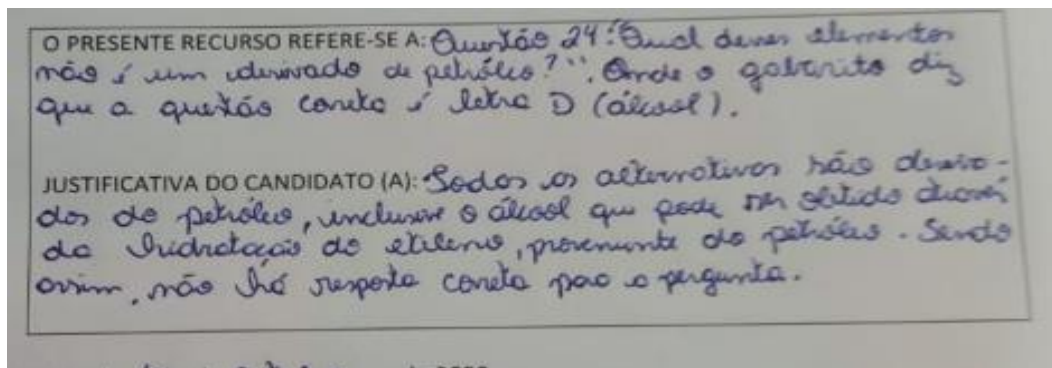 O PRESENTE RECURSO REFERE-SE A: Questão 24: "Qual desses elementos
não é um derivado de petróleo?". Onde o gabarito diz
que a questão correta é letra D (álcool).
JUSTIFICATIVA DO CANDIDATO (A): Todas as alternativas são deriva-
dos do petróleo, inclusive o álcool que pode ser obtido através
da hidratação do etileno, proveniente do petróleo. Sendo
assim, não há resposta correta para a pergunta.